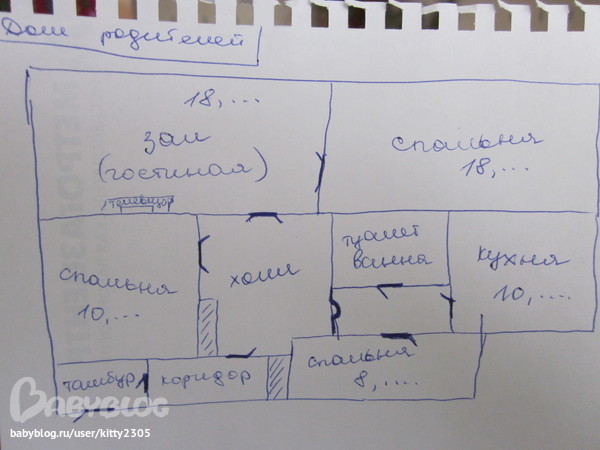 Дом родителей
18,...
зал
(гостиная)
телевизор
спальня
18,...
спальня
10,...
холл
туалет
ванна
кухня
10,...
тамбур
коридор
спальня
8,....
BABYBLOG
babyblog.ru/user/kitty2305